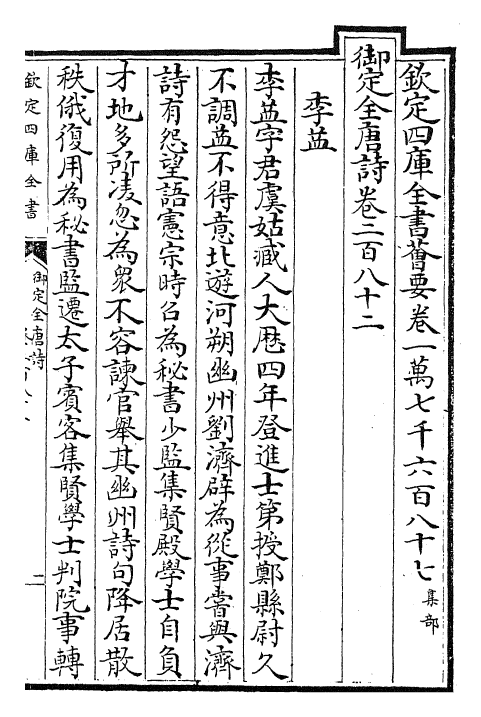 欽定四庫全書薈要卷一萬七千六百八十七集部
御定全唐詩卷二百八十二
李益
李益字君虞姑臧人大厯四年登進士第授鄭縣尉久
不調益不得意北遊河朔幽州劉濟辟為從事嘗與濟
詩有怨望語憲宗時召為秘書少監集賢殿學士自負
才地多所凌忽為衆不容諫官舉其幽州詩句降居散
秩俄復用為秘書監遷太子賓客集賢學士判院事轉
欽定四庫全書
御定全唐詩
二